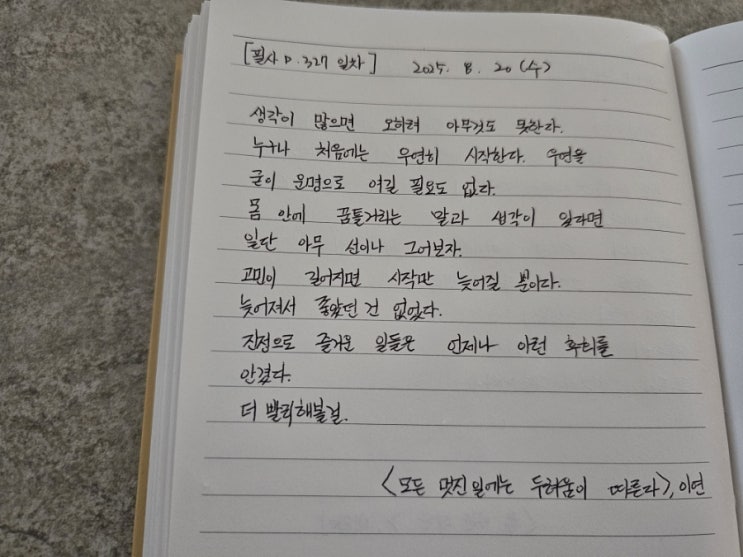 [필사 D.327 일차] 2025. 8. 20 (수)
생각이 많으면 오히려 아무것도 못한다.
누구나 처음에는 우연히 시작한다. 우연을
굳이 운명으로 여길 필요도 없다.
몸 안에 꿈틀거리는 말과 생각이 있다면
일단 아무 선이나 그어보자.
고민이 길어지면 시작만 늦어질 뿐이다.
늦어져서 좋았던 건 없었다.
진정으로 즐거운 일들은 언제나 이런 후회를
안겼다.
더 빨리해볼걸.
<모든 멋진일에는 두려움이 따른다>, 이연